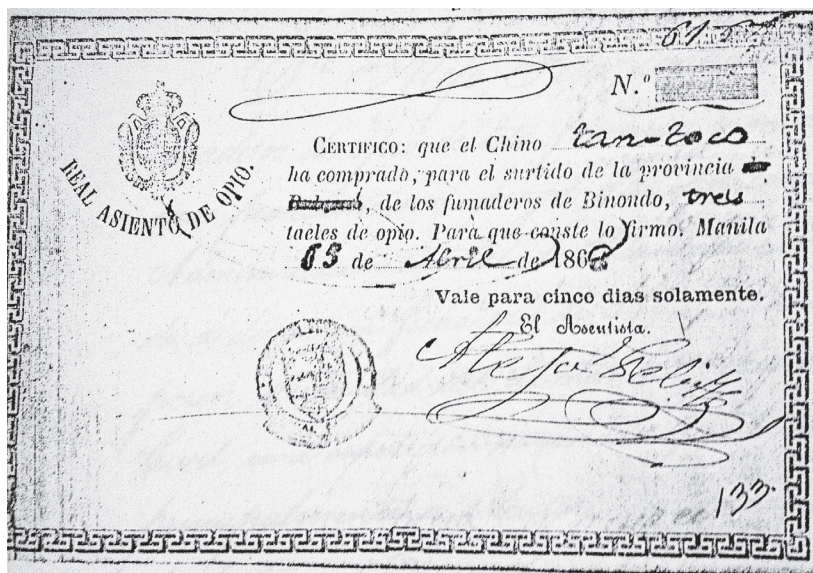 N.º
REAL ASIENTO DE OPIO.
CERTIFICO: que el Chino Tan-Toco
ha comprado, para el surtido de la provincia
de los fumaderos de Binondo, tres
taeles de opio. Para que conste lo firmo. Manila
de Abril de 186
Vale para cinco dias solamente.
El Asentista.
133